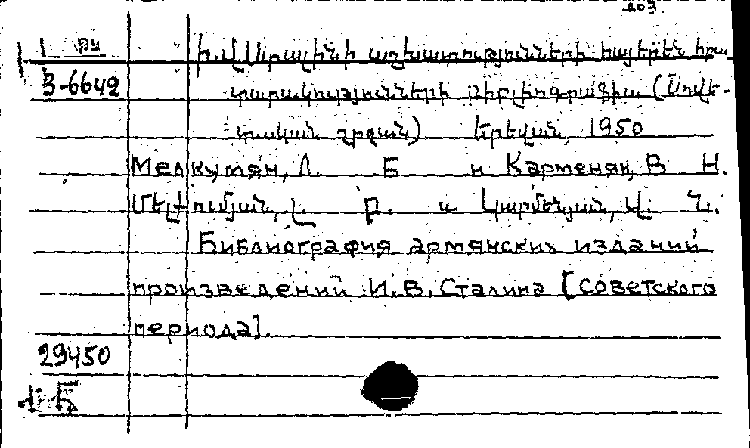 203
3-6642
Ի. Վ. Ստալինի աշխատությունների հայերեն հրա-
տարակությունների բիբլիոգրաֆիա (Սովե-
տական շրջան) Երեվան, 1950
Мелкумян, Л. Б и Карменян, В Н.
Մելքումյան, Լ. Բ. և Կարմենյան, Վ. Ն.
Библиография армянских изданий
произведений И.В.Сталина [советского
периода].
29450